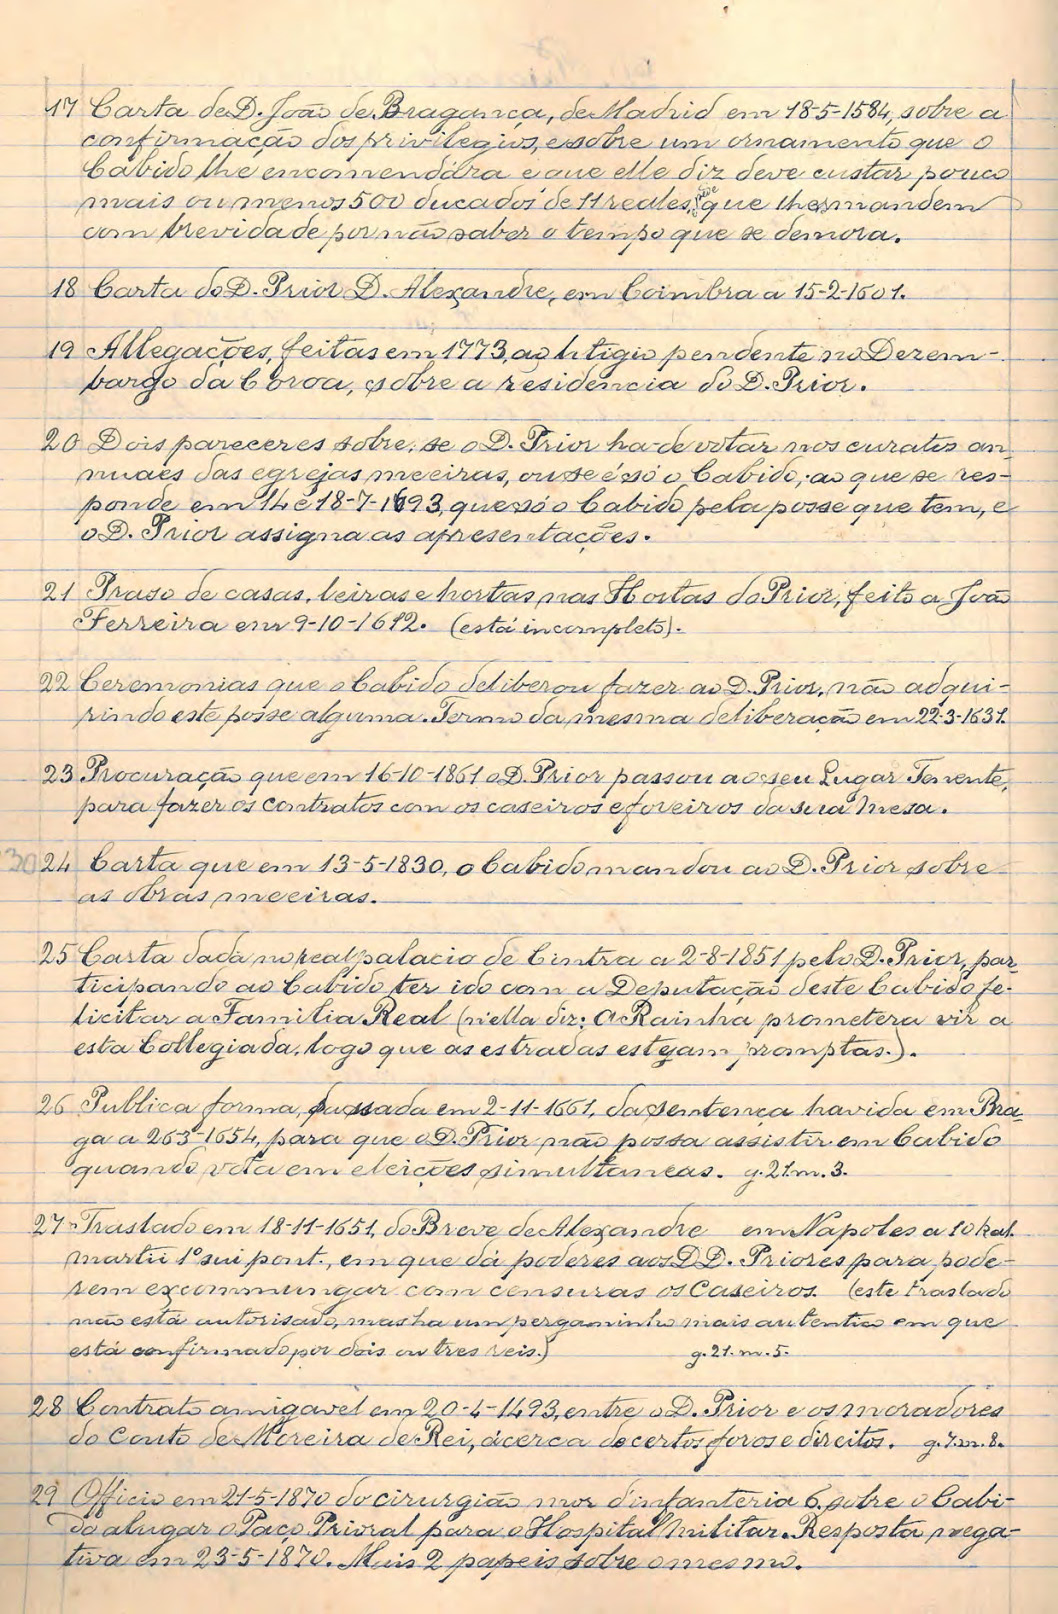 17 Carta de D. João de Bragança, de Madrid em 18-5-1584, sobre a
confirmação dos privilegios, e sobre um ornamento que o
Cabido lhe encomendára e que elle diz deve custar pouco
mais ou menos 500 ducados de 11 reales, que lhe mandem
com brevidade por não saber o tempo que se demora.
18 Carta do D. Prior D. Alexandre, em Coimbra a 15-2-1601.
19 Allegações, feitas em 1773, ao litigio pendente no Dezem-
bargo da Coroa, sobre a residencia do D. Prior.
20 Dois pareceres sobre: se o D. Prior ha-de votar nos curatos an-
nuaes das egrejas meeiras, ou se é só o Cabido; ao que se res-
ponde em 14 e 18-7-1693, que só o Cabido pela posse que tem, e
o D. Prior assigna as apresentações.
21 Praso de casas, leiras e hortas nas Hortas do Prior, feito a João
Ferreira em 9-10-1612. (está incompleto).
22 Ceremonias que o Cabido deliberou fazer ao D. Prior, não adqui-
rindo este posse alguma. Termo da mesma deliberação em 22-3-1631.
23 Procuração que em 16-10-1861 o D. Prior passou ao seu Lugar Tenente,
para fazer os contratos com os caseiros e foreiros da sua Mesa.
30 24 Carta que em 13-5-1830, o Cabido mandou ao D. Prior sobre
as obras meeiras.
25 Carta dada no real palacio de Cintra a 2-8-1851 pelo D. Prior, par-
ticipando ao Cabido ter ido com a Deputação deste Cabido fe-
licitar a Familia Real (n'ella diz: A Rainha prometera vir a
esta Collegiada, logo que as estradas estejam promptas.).
26 Publica forma, passada em 2-11-1661, da sentença havida em Bra-
ga a 26-3-1654, para que o D. Prior não possa assistir em Cabido
quando vota em eleições simultaneas. g. 21. m. 3.
27 Traslado em 18-11-1651, do Breve de Alexandre em Napoles a 10 kal.
martii 1º sui pont., em que dá poderes aos D D. Priores para pode-
rem excommungar com censuras os Caseiros. (este traslado
não está autorisado, mas ha um pergaminho mais autentico em que
está confirmado por dois ou tres reis.) g. 21. m. 5.
28 Contrato amigavel em 20-4-1493, entre o D. Prior e os moradores
do Couto de Moreira de Rei, ácerca de certos foros e direitos. g. 7. m. 8.
29 Officio em 21-5-1870 do cirurgião mor d'infanteria 6, sobre o Cabi-
do alugar o Paço Prioral para o Hospital Militar. Resposta nega-
tiva em 23-5-1870. Mais 2 papeis sobre o mesmo.